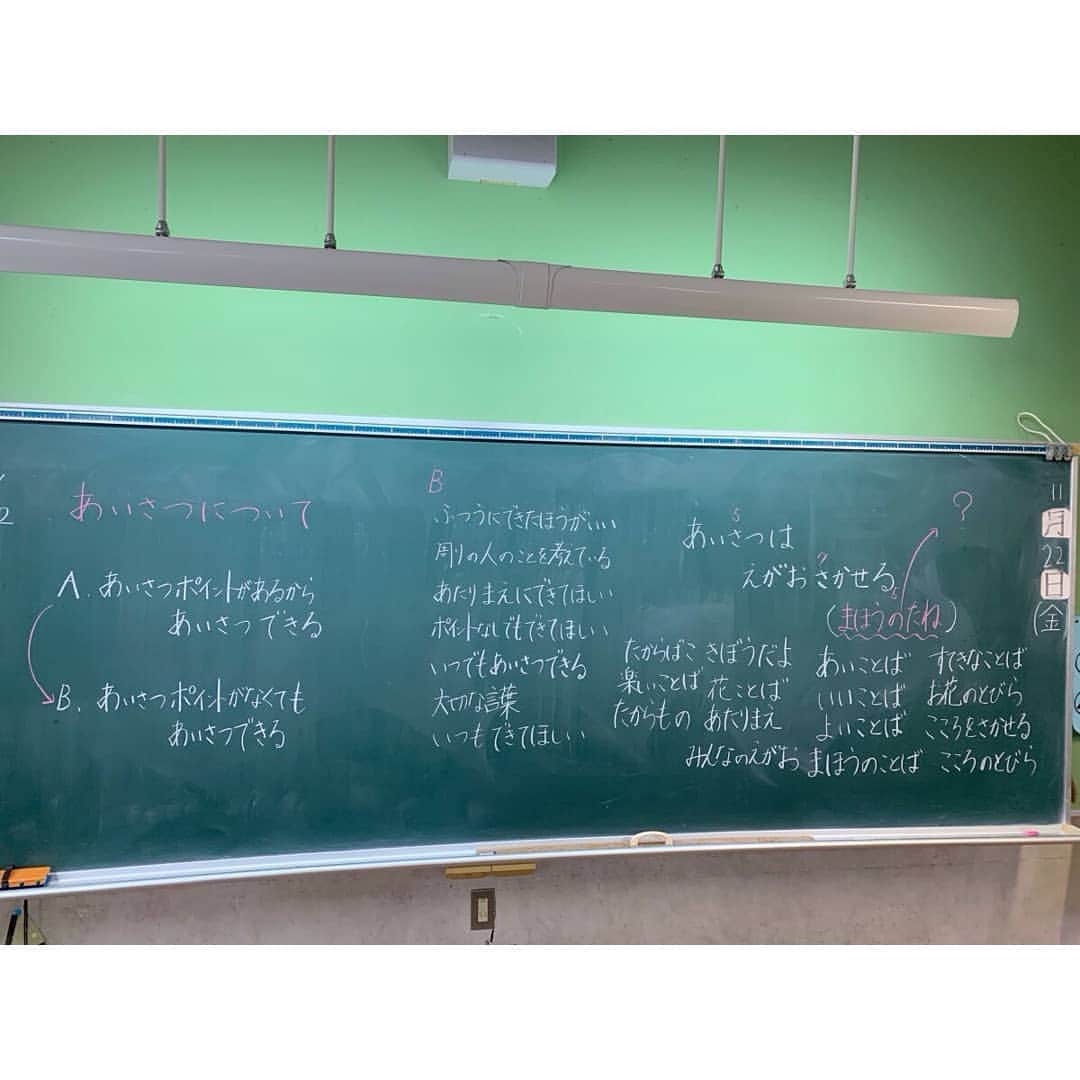 あいさつについて
A. あいさつポイントがあるから
あいさつできる
B. あいさつポイントがなくても
あいさつできる
B
ふつうにできたほうがいい
周りの人のことを考えている
あたりまえにできてほしい
ポイントなしでもできてほしい
いつでもあいさつできる
大切な言葉
いつもできてほしい
5
あいさつは
7
えがおさかせる
5
(まほうのたね)
?
たからばこ さぼうだよ あいことば すてきなことば
楽しいことば 花ことば いいことば お花のとびら
たからもの あたりまえ よいことば こころをさかせる
みんなのえがお まほうのことば こころのとびら
11
月
22
日
(金)
2